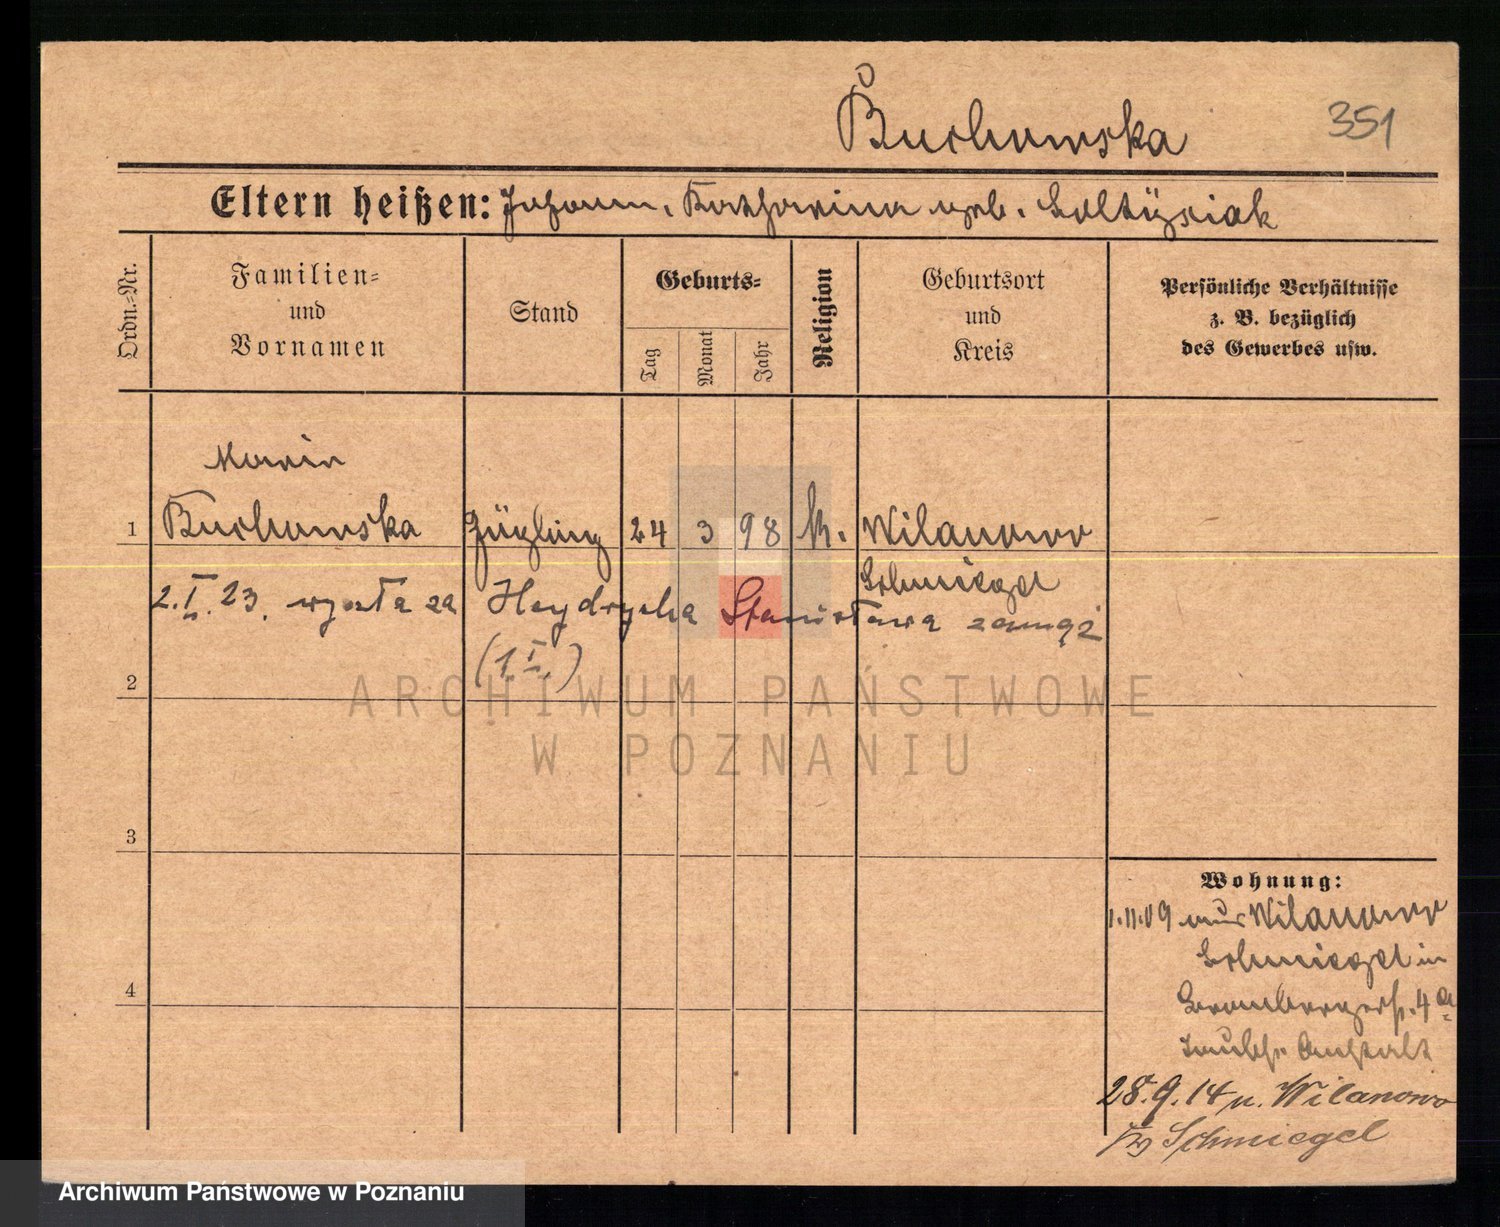 Buchowska 351
Eltern heißen: Johann, Katharina geb. Soltÿsiak
Ordn.=Nr.
Familien=
und
Vornamen
Stand
Geburts=
Tag
Monat
Jahr
Religion
Geburtsort
und
Kreis
Persönliche Verhältnisse
z. B. bezüglich
des Gewerbes usw.
Maria
1 Buchowska Zögling 24 3 98 k. Wilanowo
Schmiegel
2.I.23. wyszła za Heydrycha Stanisława zamąż
(1.I.)
2
ARCHIWUM PAŃSTWOWE
W POZNANIU
3
Wohnung:
1.11.09 aus Wilanowo
Schmiegel in
4
Brombergerstr. 4a
Taubst. Anstalt
28.9.14 n. Wilanowo
Schmiegel
Archiwum Państwowe w Poznaniu